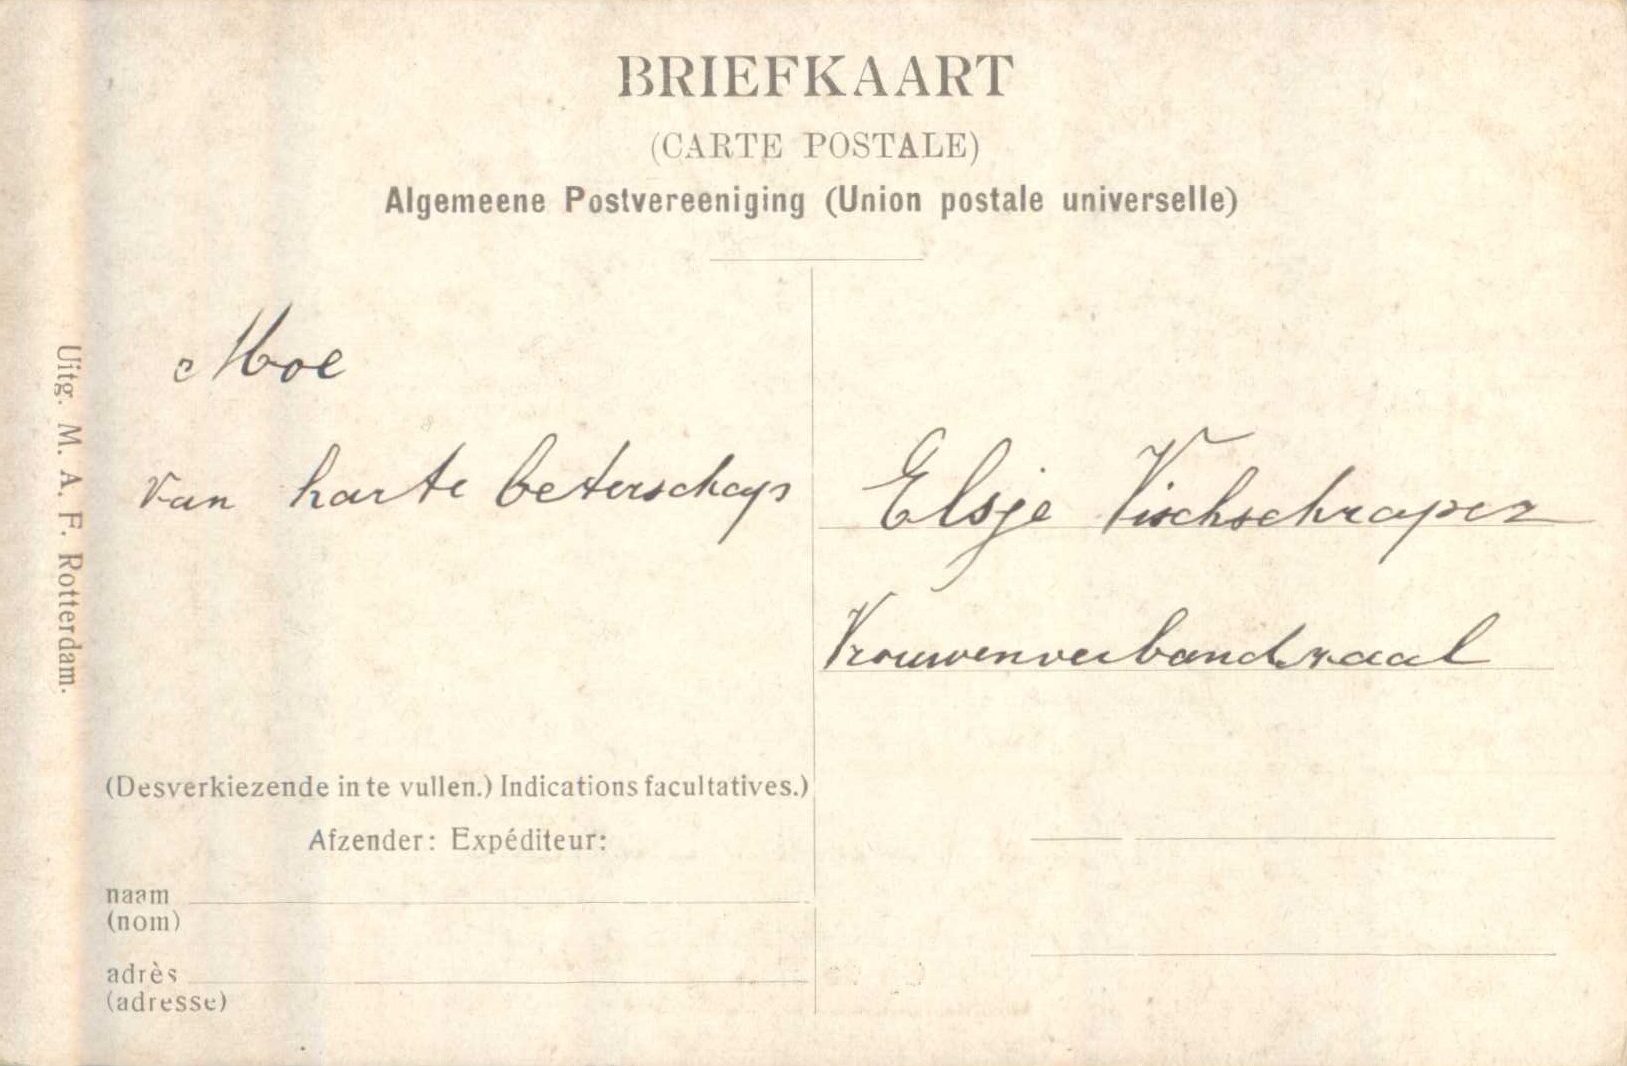 BRIEFKAART
(CARTE POSTALE)
Algemeene Postvereeniging (Union postale universelle)
Moe
van harte beterschap
Elsje Vischschraper
Vrouwenverbandzaal
(Desverkiezende in te vullen.) Indications facultatives.)
Afzender: Expéditeur:
naam
(nom)
adrès
(adresse)
Uitg. M. A. F. Rotterdam.